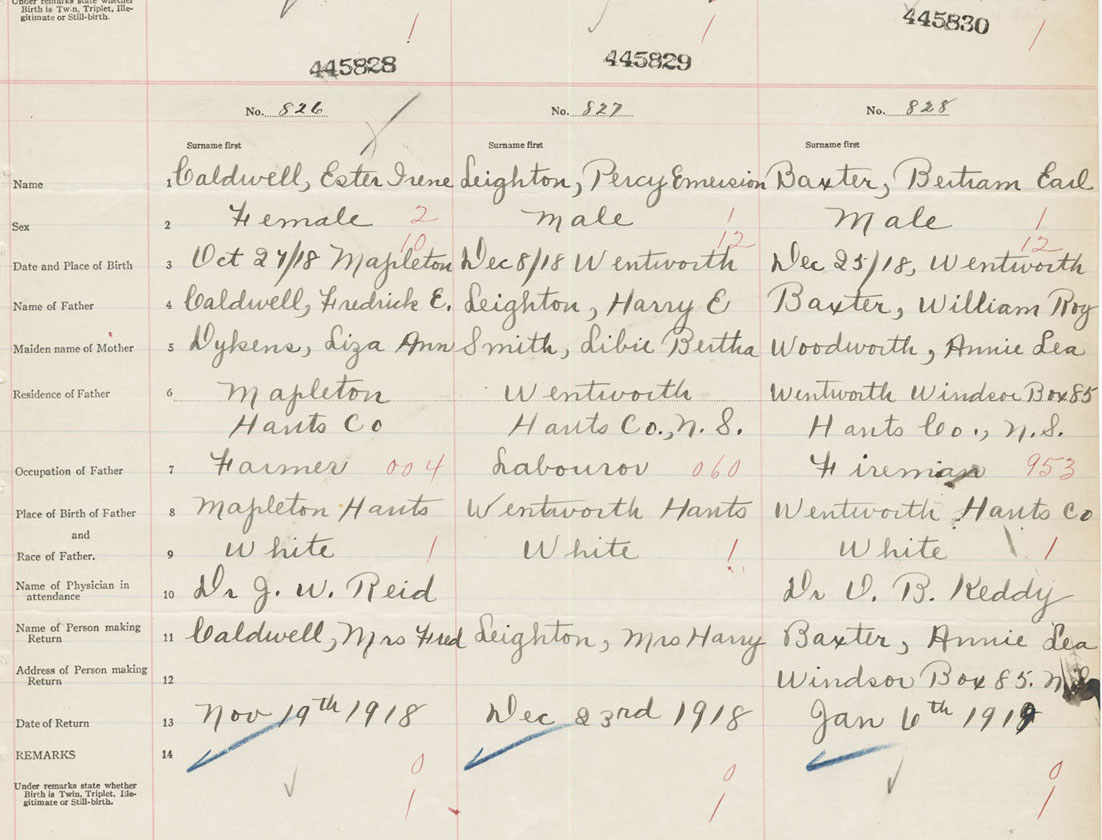 Under remarks state whether
Birth is Twin, Triplet, Ille-
gitimate or Still-birth.
1 1 1
445828 445829 445830
No. 826 No. 827 No. 828
Surname first Surname first Surname first
Name 1 Caldwell, Ester Irene Leighton, Percy Emersion Baxter, Bertram Earl
Sex 2 Female 2 Male 1 Male 1
10 12 12
Date and Place of Birth 3 Oct 27/18 Mapleton Dec 8/18 Wentworth Dec 25/18, Wentworth
Name of Father 4 Caldwell, Fredrick E. Leighton, Harry E Baxter, William Roy
Maiden name of Mother 5 Dykens, Liza Ann Smith, Libie Bertha Woodworth, Annie Lea
Residence of Father 6 Mapleton Wentworth Wentworth Windsor Box 85
Hants Co Hants Co., N.S. Hants Co., N.S.
Occupation of Father 7 Farmer 004 Labouror 060 Fireman 953
Place of Birth of Father 8 Mapleton Hants Wentworth Hants Wentworth Hants Co
and
Race of Father. 9 White 1 White 1 White 1
Name of Physician in
attendance 10 Dr J. W. Reid Dr O. B. Keddy
Name of Person making
Return 11 Caldwell, Mrs Fred Leighton, Mrs Harry Baxter, Annie Lea
Address of Person making
Return 12 Windsor Box 85.
Date of Return 13 Nov 19th 1918 Dec 23rd 1918 Jan 6th 1919
REMARKS 14 0 0 0
Under remarks state whether
Birth is Twin, Triplet, Ille-
gitimate or Still-birth.
1 1 1